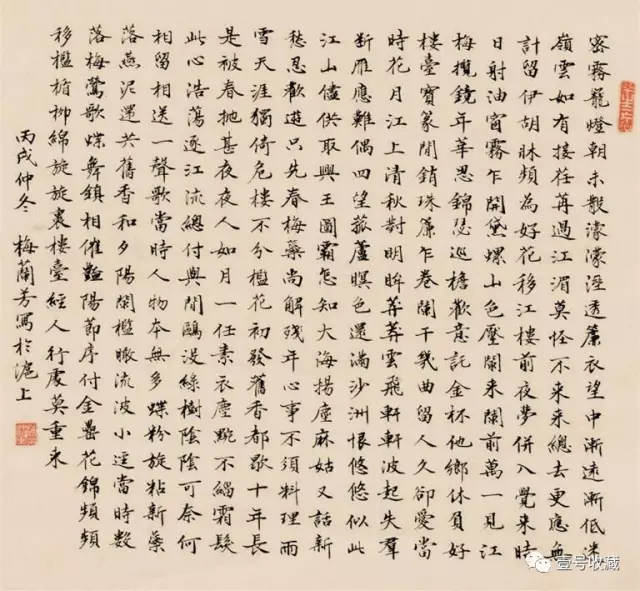 密霧籠燈朝未散濛濛溼透簾衣望中漸遠漸低迷
嶺雲如有接荏苒過江湄莫怪不來來總去更應無
計留伊胡牀頻為好花移江樓前夜夢併入覺來時
日射油窗霧乍開黛螺山色壓闌來闌前萬一見江
梅攬鏡年華思錦瑟巡檐歡意託金杯他鄉休負好
樓臺寶篆閒銷珠簾乍卷闌干幾曲留人久卻愛當
時花月江上清秋對明眸苒苒雲飛軒軒波起失羣
斷雁應難偶四望菰蘆暝色還滿沙洲恨悠悠似此
江山儘供取興王圖霸怎知大海揚塵麻姑又話新
愁忍歡遊只先春梅藥尚解殘年心事不須料理雨
雪天涯獨倚危樓不分檻花初發舊香都歇十年長
是被春拋甚夜夜人如月一任素衣塵黦不緇霜髮
此心浩蕩逐江流總付與閒鷗沒綠樹陰陰可奈何
相留相送一聲歌當時人物本無多蝶粉旋粘新藥
落燕泥還共舊香和夕陽闌檻瞰流波小窪當時數
落梅鶯歌蝶舞鎮相催豔陽節序付金罍花錦頻頻
移檻楯柳綿旋旋裹樓臺經人行處莫重來
丙戌仲冬 梅蘭芳寫於滬上
壹号收藏